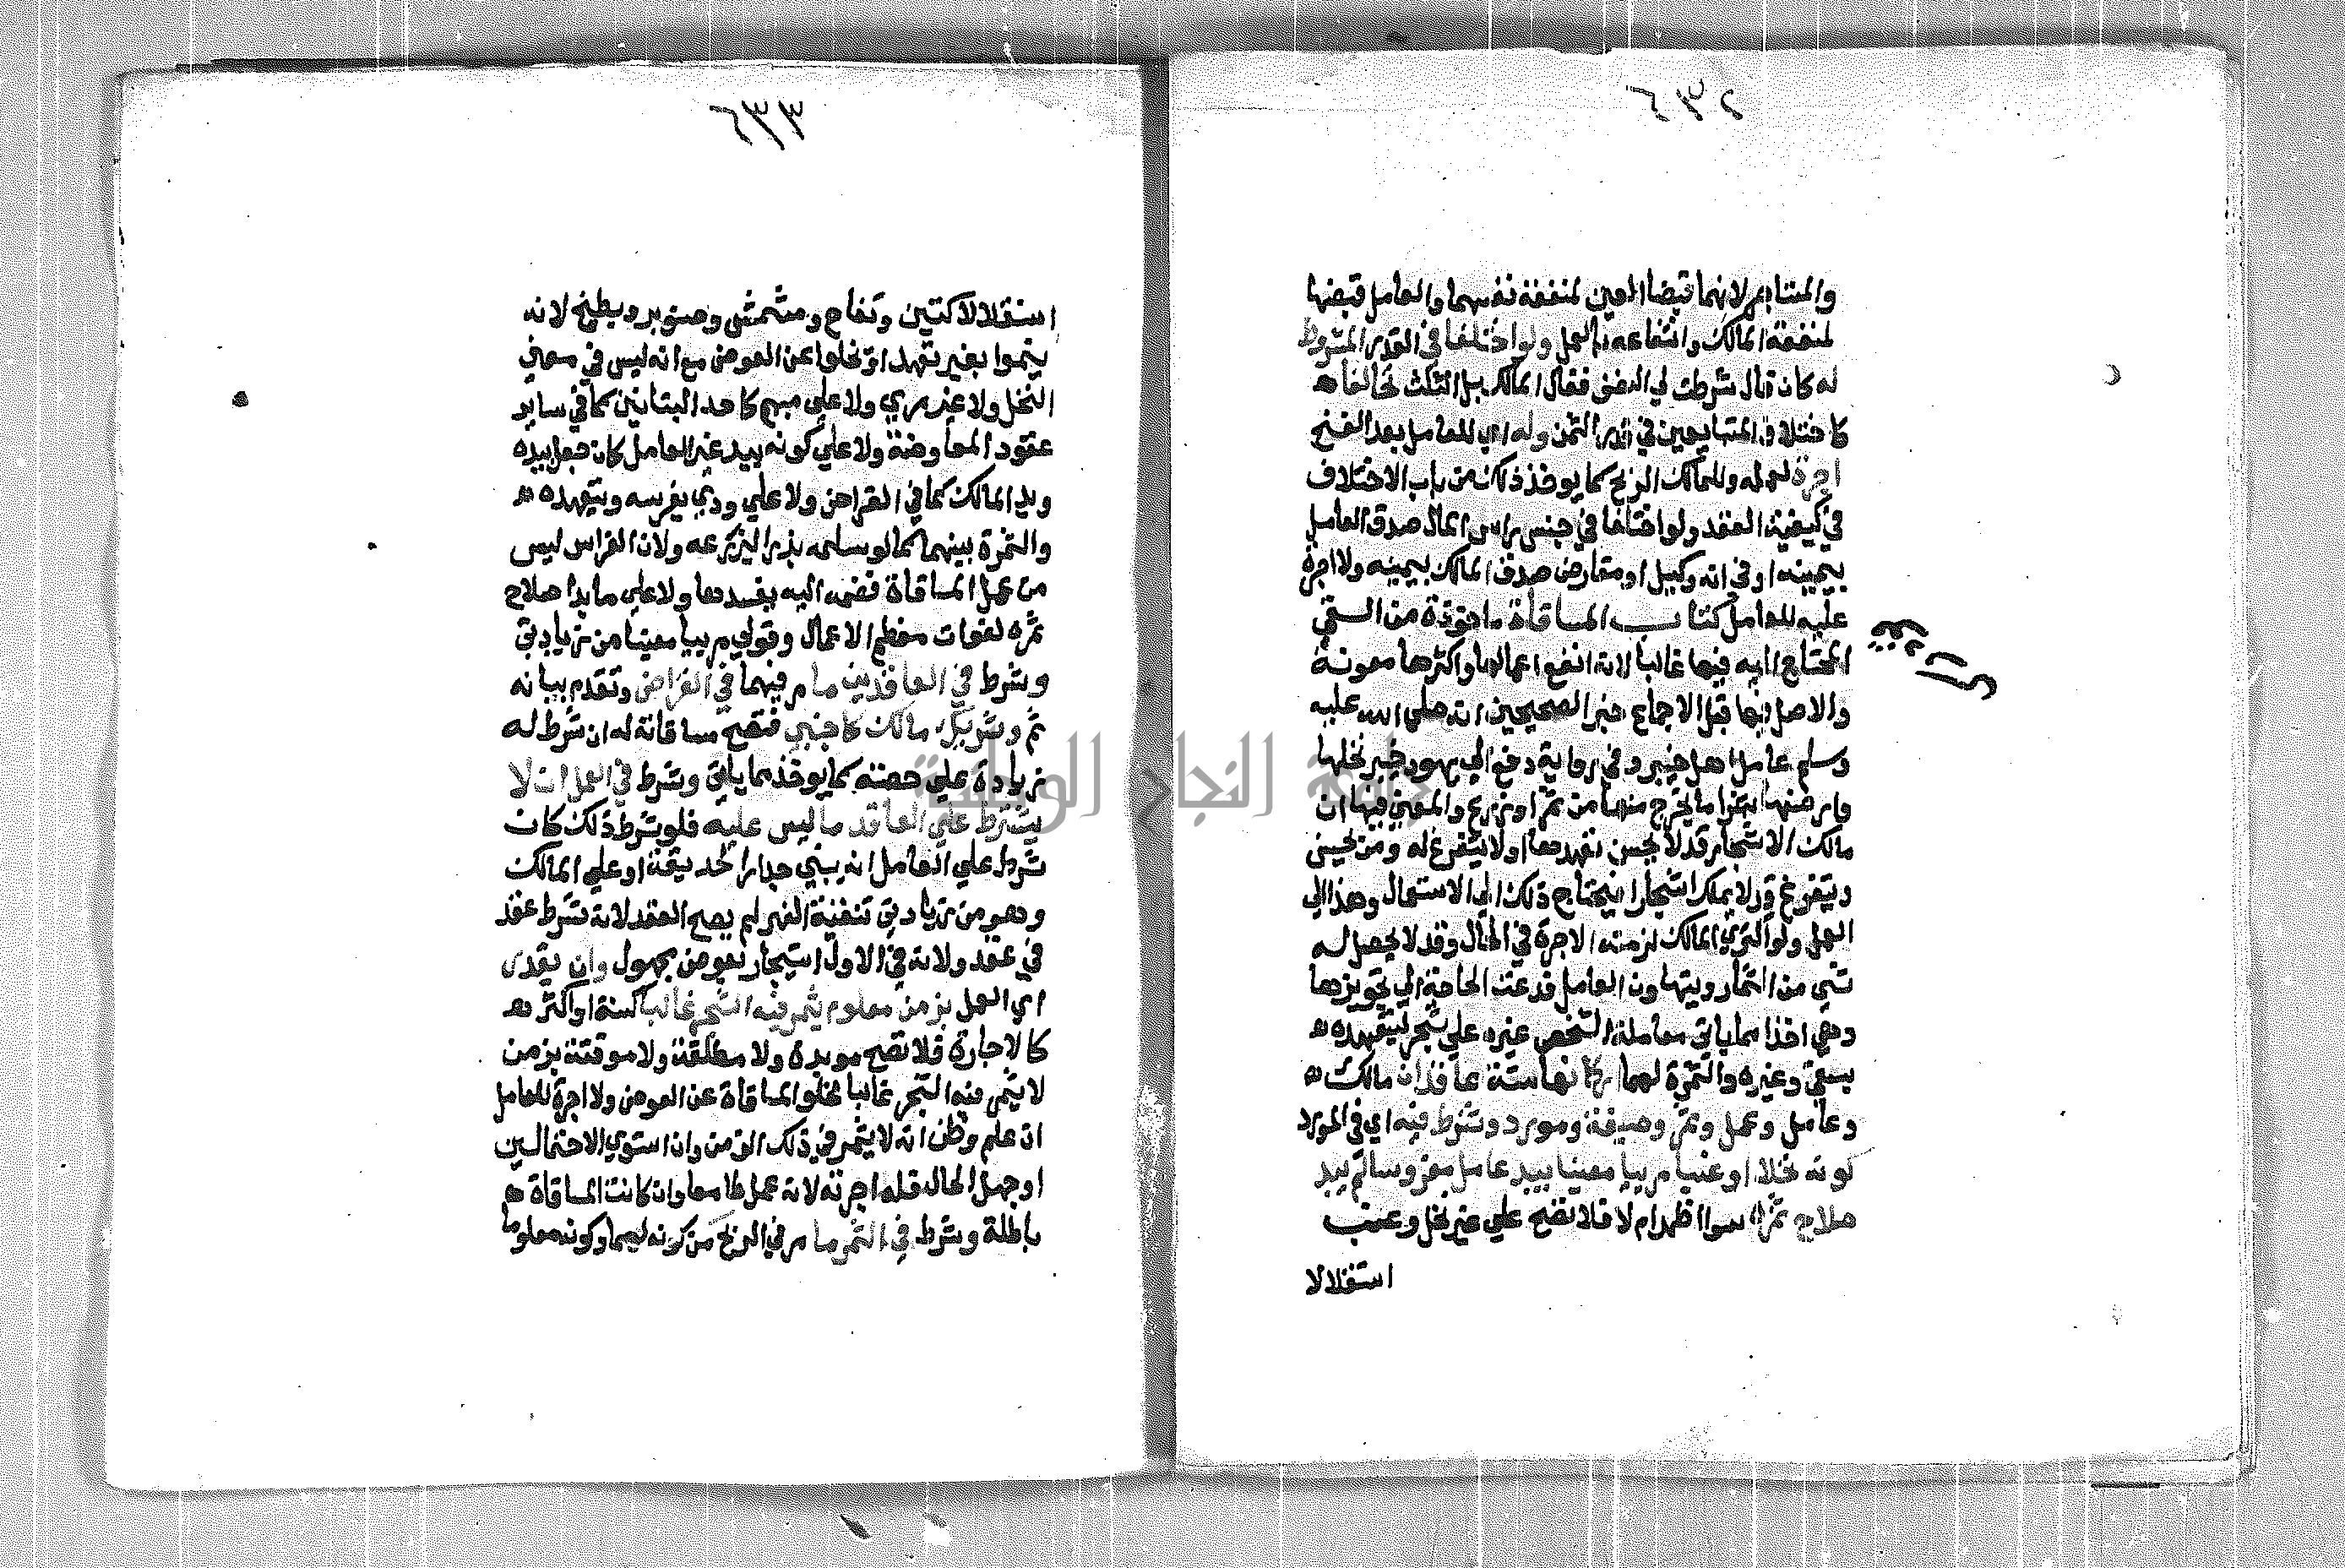 ٦٣٢
والمستام لانهما قبضا العين لمنفعة نفسهما والعامل قبضها
لمنفعة المالك وانتفاعه بالعمل ولو اختلفا في القدر المشروط
له كان قال شرطت لي النصف فقال المالك بل الثلث تحالفا هـ
كاختلاف المتبايعين في قدر الثمن وله اي للعامل بعد الفسخ
اجرة لعمله وللمالك الربح كما يوخذ ذلك من باب الاختلاف
في كيفية العقد ولو اختلفا في جنس راس المال صدق العامل
بيمينه او في انه وكيل او مقارض صدق المالك بيمينه ولا اجرة
عليه للعامل كتاب المساقاة ماخوذة من السقي
المحتاج اليه فيها غالبا لانه انفع اعمالها واكثرها معونة
والاصل فيها قبل الاجماع خبر الصحيحين انه صلي الله عليه
وسلم عامل اهل خيبر وفي رواية دفع الي يهود خيبر نخلها
وارضها بشطر ما يخرج منها من ثمر او زرع والمعني فيها ان
مالك الاشجار قد لا يحسن تعهدها او لا يتفرغ له ومن يحسن
ويتفرغ قد لا يملك اشجارا فيحتاج ذلك الي الاستعمال وهذا الي
العمل ولو اكتري المالك لزمته الاجرة في الحال وقد لا يحصل له
شي من الثمار ويتهاون العامل فدعت الحاجة الي تجويزها
وهي اخذا مما ياتي معاملة الشخص غيره علي شجر ليتعهده هـ
بسقي وغيره والثمرة لهما اركانها ستة عاقدان مالك هـ
وعامل وعمل وثمر وصيغة ومورد وشرط فيه اي في المورد
كونه نخلا او عنبا مرييا معينا بيد عامل مغروسا لم يبد
صلاح ثمره سوا اظهر ام لا فلا تصح علي غير نخل وعنب
استقلالا
٦٣٣
استقلالا كتين وتفاح ومشمش وصنوبر وبطيخ لانه
ينموا بغير تعهد او تخلوا عن العوض مع انه ليس في معني
النخل ولا غير مري ولا علي مبهم كاحد البستانين كما في ساير
عقود المعاوضة ولا علي كونه بيد غير العامل كان جعل بيده
ويد المالك كما في القراض ولا علي ودي يغرسه ويتعهده هـ
والثمرة بينهما كما لو سلمه بذرا ليزرعه ولان الغراس ليس
من عمل المساقاة فضمه اليه يفسدها ولا علي ما بدا صلاح
ثمره لفوات معظم الاعمال وقولي مرييا معينا من زيادتي
وشرط في العاقدين ما مر فيهما في القراض وتقدم بيانه
ثم وشريك مالك كاجنبي فتصح مساقاته له ان شرط له
زيادة علي حصته كما يوخذ مما ياتي وشرط في العمل ان لا
يشترط علي العاقد ما ليس عليه فلو شرط ذلك كان
شرط علي العامل ان يبني جدار الحديقة او علي المالك
وهو من زيادتي تنقية النهر لم يصح العقد لانه شرط عقد
في عقد ولانه في الاول استيجار بعوض مجهول وان يقدر
اي العمل بزمن معلوم يثمر فيه الشجر غالبا كسنة او اكثر هـ
كالاجارة فلا تصح موبدة ولا مطلقة ولا موقتة بزمن
لا يثمر فيه الشجر غالبا لخلو المساقاة عن العوض ولا اجرة للعامل
ان علم وظن انه لا يثمر في ذلك الزمن وان استوي الاحتمالين
او جهل الحال فله اجرته لانه عمل طامعا وان كانت المساقاة هـ
باطلة وشرط في الثمر ما مر في الربح من كونه لهما وكونه معلوما